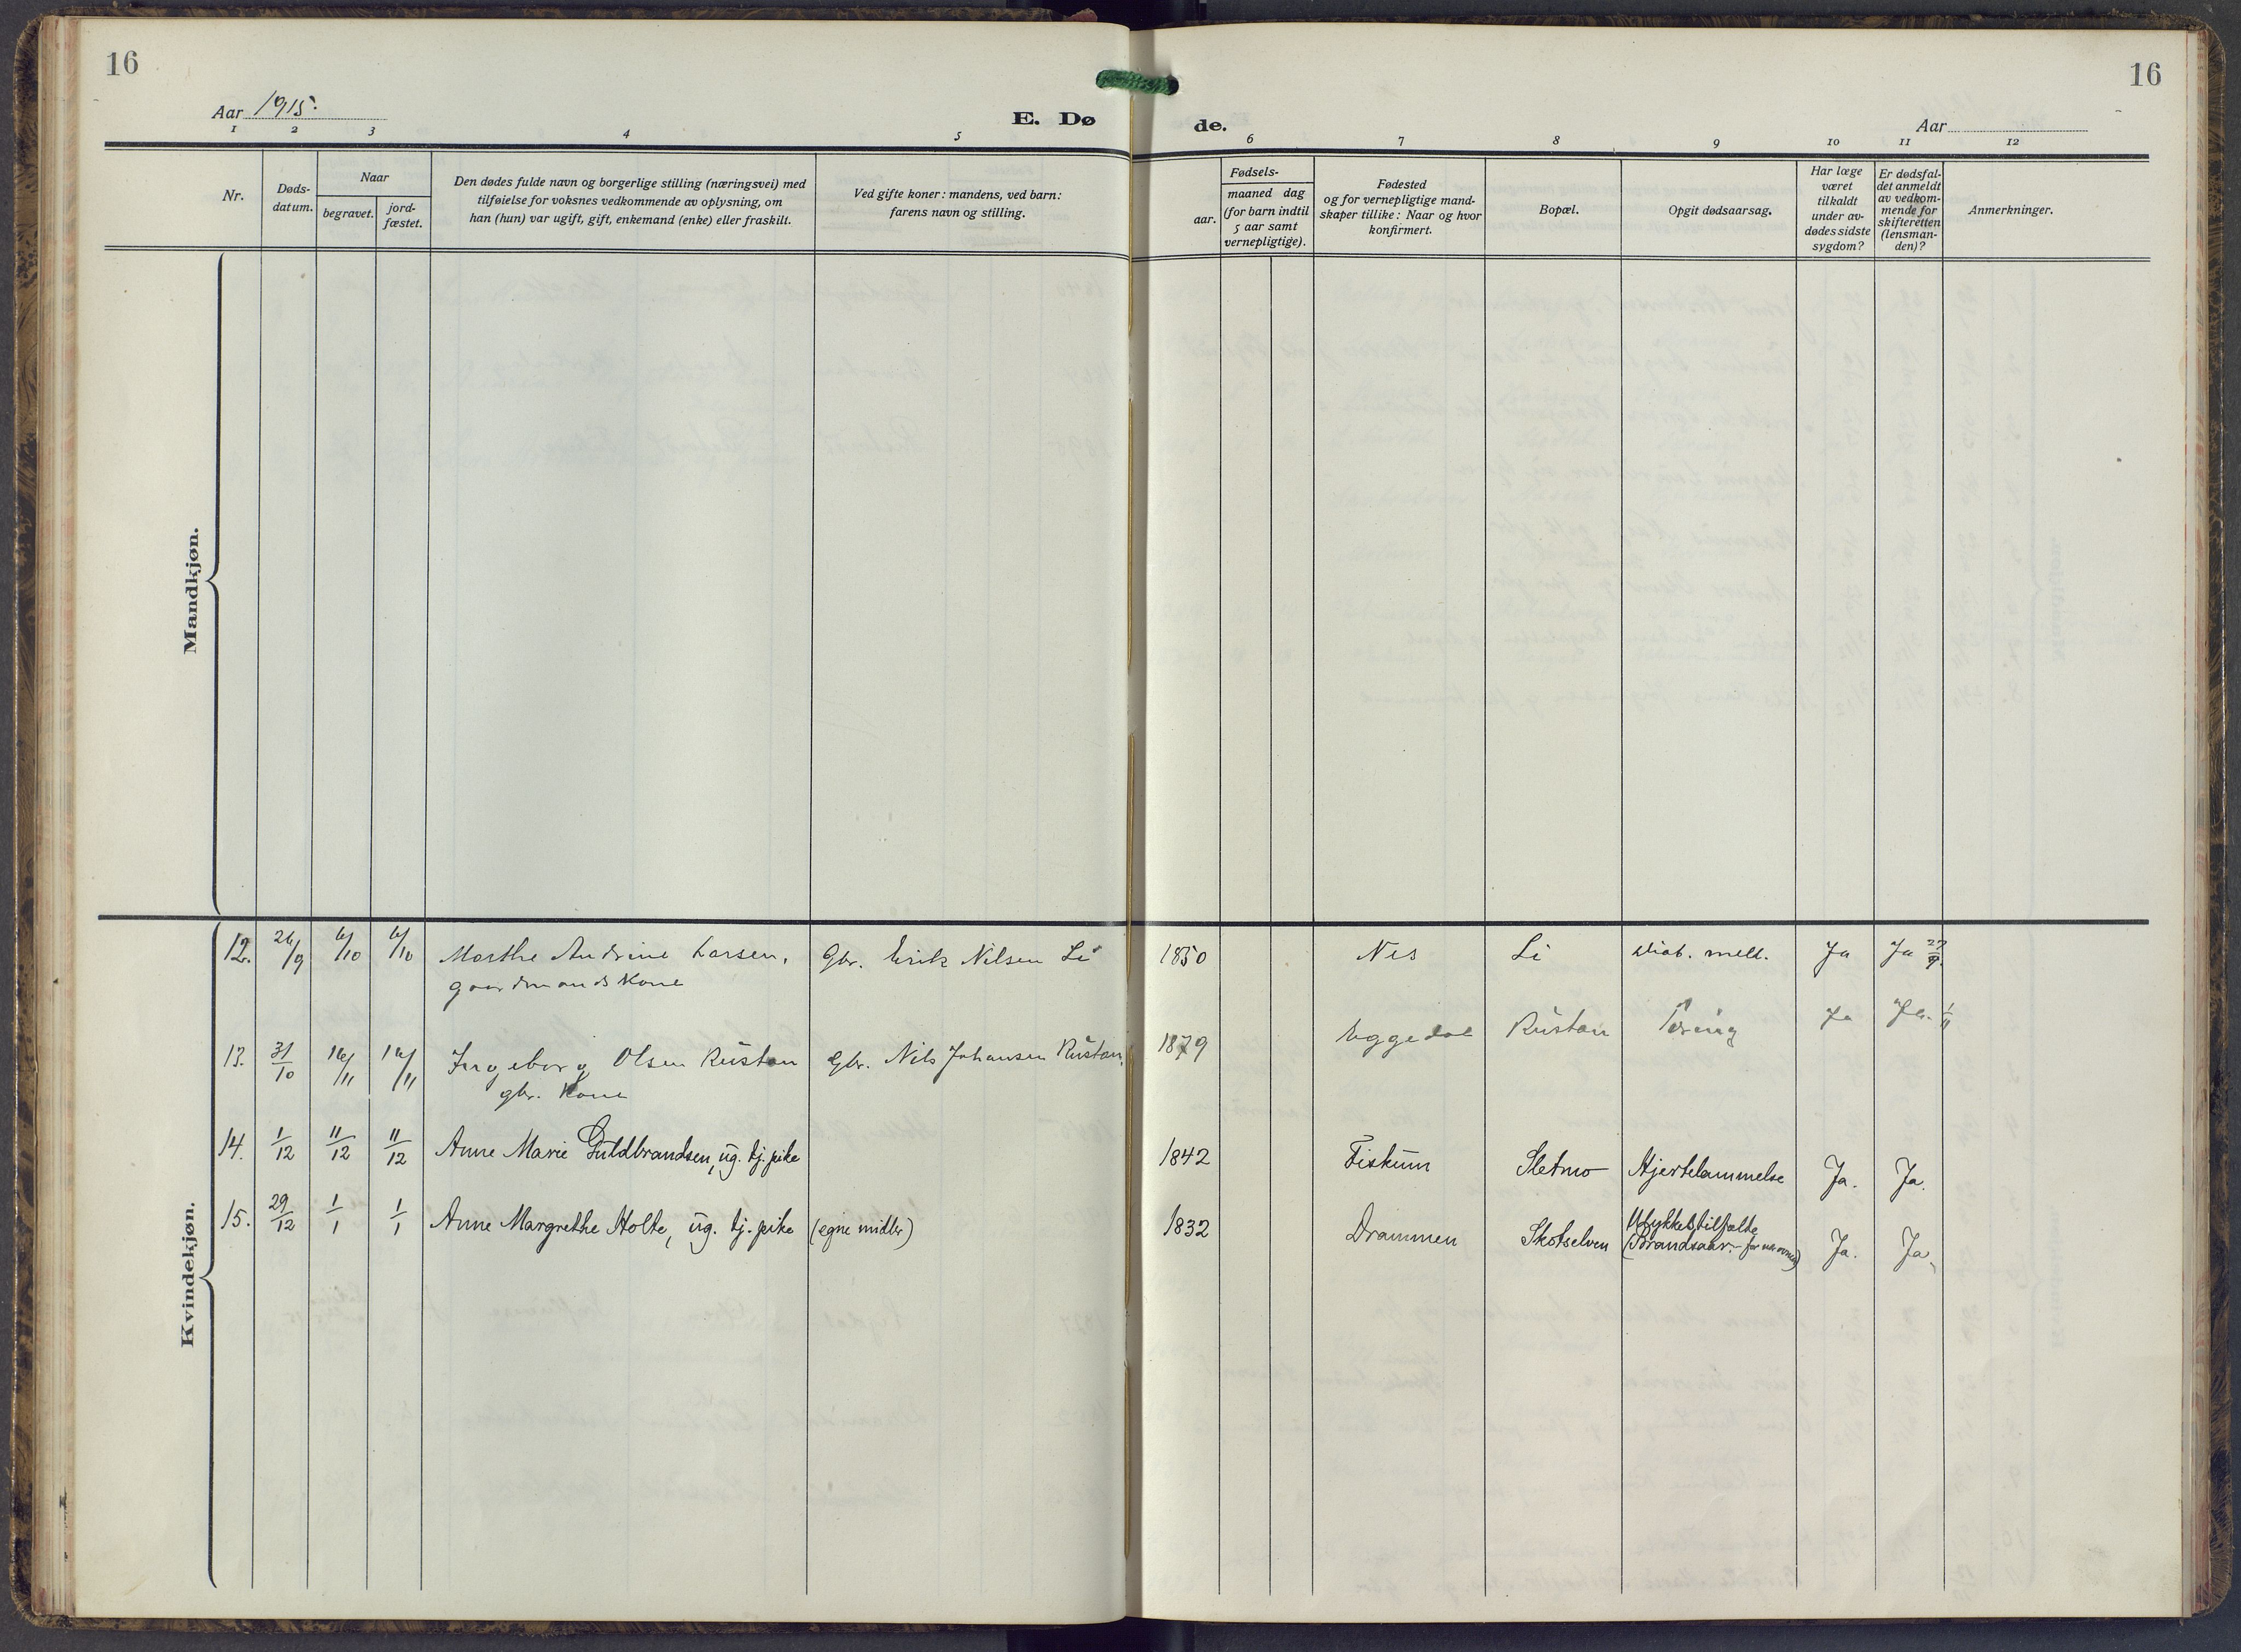 16
16
Aar 1915.
E. Dø
de.
Aar
1 2 3 4 5 6 7 8 9 10 11 12
Nr.
Døds-
datum.
Naar
begravet.
jord-
fæstet.
Den dødes fulde navn og borgerlige stilling (næringsvei) med
tilføielse for voksnes vedkommende av oplysning, om
han (hun) var ugift, gift, enkemand (enke) eller fraskilt.
Ved gifte koner: mandens, ved barn:
farens navn og stilling.
Fødsels-
aar.
maaned dag
(for barn indtil
5 aar samt
vernepligtige).
Fødested
og for vernepligtige mand-
skaper tillike: Naar og hvor
konfirmert.
Bopæl.
Opgit dødsaarsag.
Har læge
været
tilkaldt
under av-
dødes sidste
sygdom?
Er dødsfal-
det anmeldt
av vedkom-
mende for
skifteretten
(lensman-
den)?
Anmerkninger.
Mandkjøn.
Kvindekjøn.
12. 26/9 6/10 6/10 Marthe Andrine Larsen, Gbr. Erik Nilsen Li 1850 Nes Li diab. mell. Ja Ja 27/9.
gaardmandskone
13. 31/10 16/11 16/11 Ingeborg Olsen Rustan Gbr. Nils Johansen Rustan, 1879 Eggedal Rustan Ja Ja. 1/11
gbr. kone
14. 1/12 11/12 11/12 Anne Marie Guldbrandsen, ug. tj. pike 1842 Fiskum Sletmo Hjertelammelse Ja. Ja.
15. 29/12 1/1 1/1 Anne Margrethe Holte, ug. tj. pike (egne midler) 1832 Drammen Skotselven Ulykkestilfælde Ja. Ja.
(Brandsaar